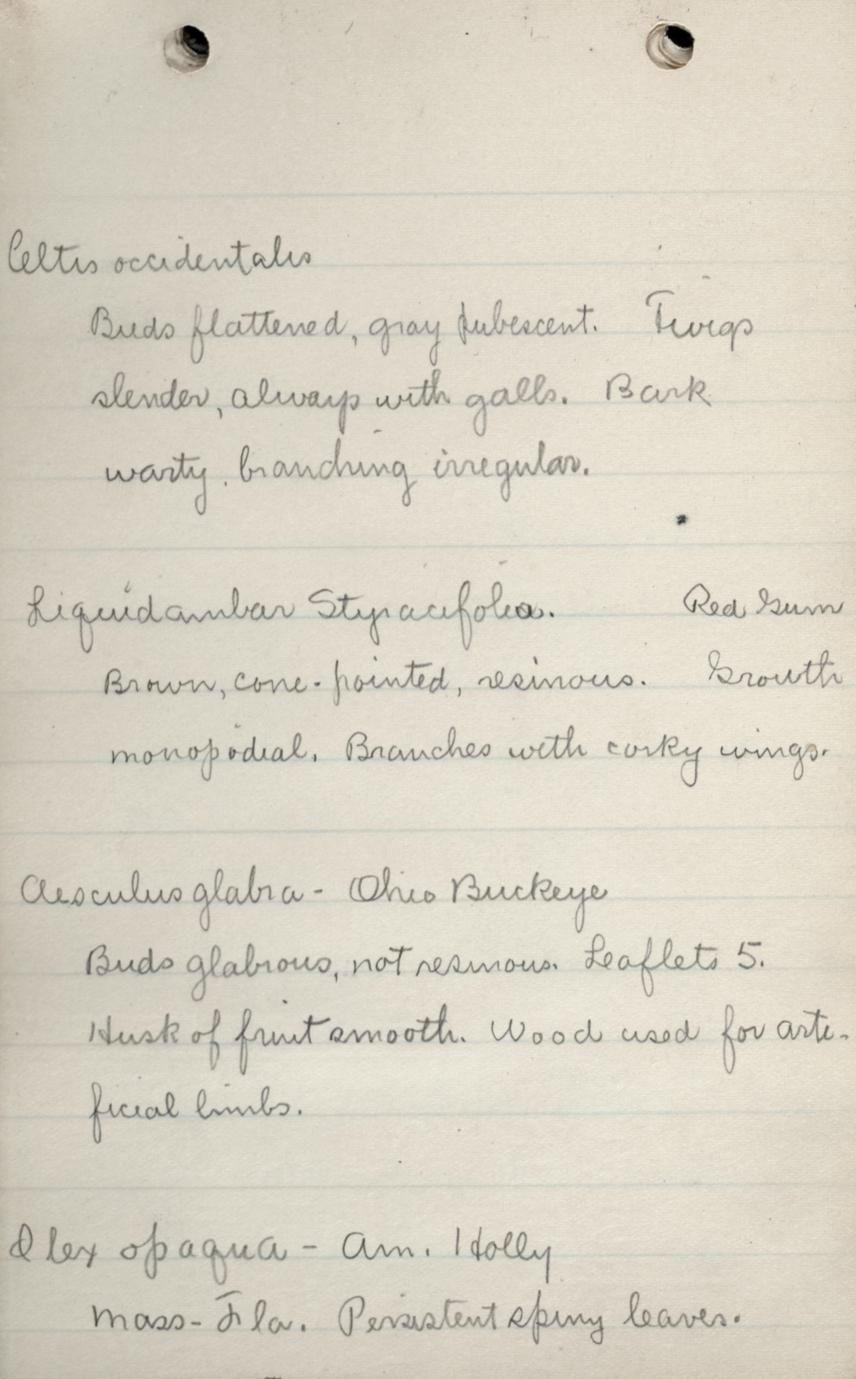 Celtis occidentalis
Buds flattened, gray pubescent. Twigs
slender, always with galls. Bark
warty, branching irregular.
Liquidambar Styracifolia. Red Gum
Brown, cone-pointed, resinous. Growth
monopodial. Branches with corky wings.
Aesculus glabra - Ohio Buckeye
Buds glabrous, not resinous. Leaflets 5.
Husk of fruit smooth. Wood used for arti-
ficial limbs.
Ilex opaqua - Am. Holly
Mass - Fla. Persistent spiny leaves.